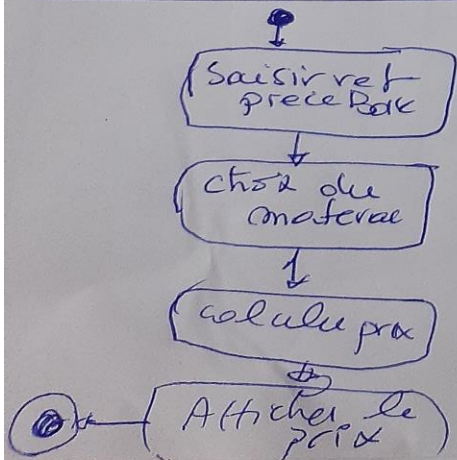 Saisir ref
piece
choix du
materiel
calcule prix
Afficher le
prix